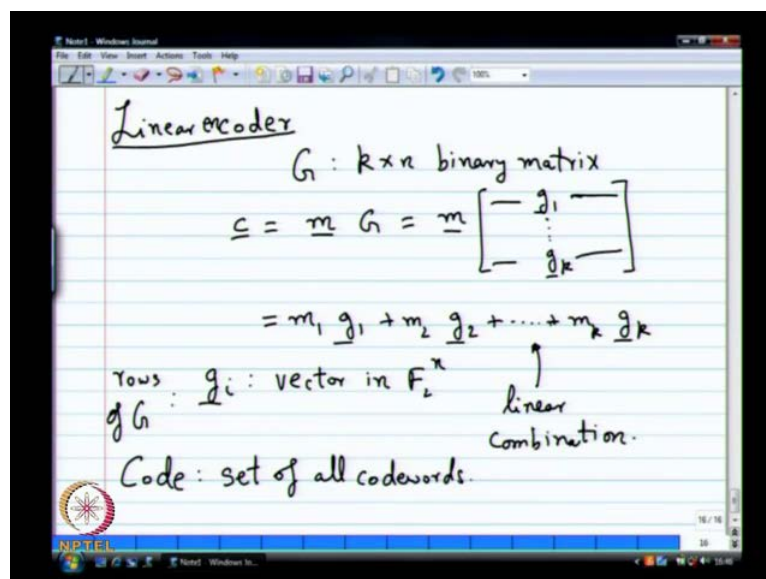 Note1 - Windows Journal
File Edit View Insert Actions Tools Help
100%
Linear encoder
G : k×n binary matrix
c = m G = m [ — g1 — ⋮ — gk — ]
= m1 g1 + m2 g2 + ..... + mk gk
rows of G : gi : vector in F2^n
linear combination.
Code : set of all codewords.
16 / 16
16
NPTEL
Note1 - Windows Jo...
16:46